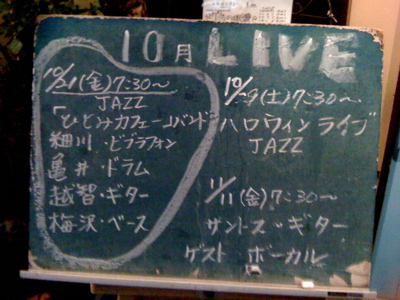 10月 LIVE
10/21(金)7:30〜
JAZZ
「ひとみカフェーバンド
細川・ビブラフォン
亀井・ドラム
越智・ギター
梅沢・ベース
10/29(土)7:30〜
ハロウィンライブ
JAZZ
11/11(金)7:30〜
サントス・ギター
ゲスト ボーカル